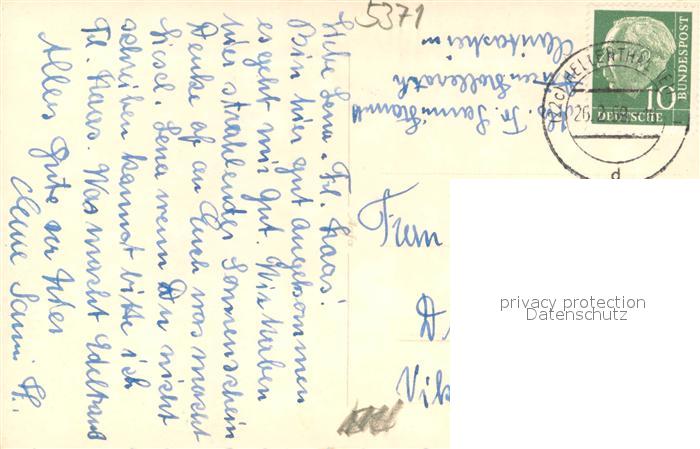 5371
Liebe Lena, Frl. Haas!
Bin hier gut angekommen
es geht mir gut. Wir haben
hier strahlenden Sonnenschein
Denke oft an Euch was macht
Liesel. Lena wenn Du nicht
schreiben kannst bitte ich
Frl. Haas. Was macht Edeltraud
Alles Gute zur
Deine Sanni H.
Abs. Fr. Sanni
BUNDESPOST
10
DEUTSCHE
(22c) HELLENTHAL
d
Frau
D
Vik
privacy protection
Datenschutz